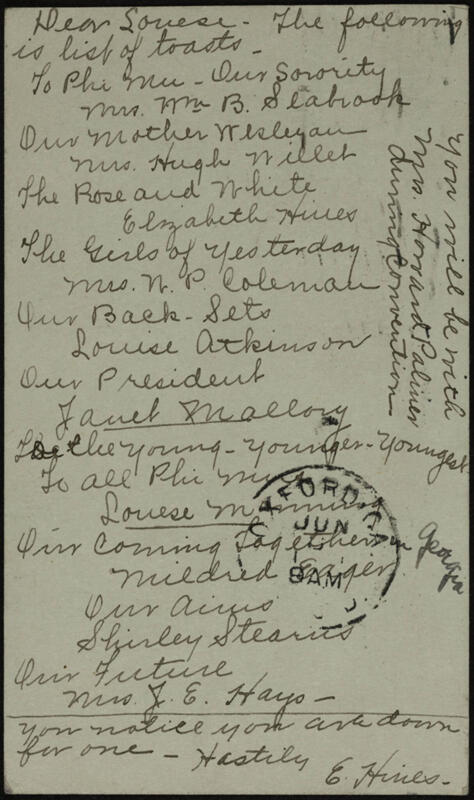 Dear Louese - The following
is list of toasts -
To Phi Mu - Our Sorority
Mrs. Wm B. Seabrook
Our Mother Wesleyan
Mrs. Hugh Willet
The Rose and White
Elizabeth Hines
The Girls of Yesterday
Mrs. W. P. Coleman
Our Back-Sets
Louise Atkinson
Our President
Janet Mallory
The Young - Younger - Youngest
To all Phi Mus
Louese
Our Coming Together in Georgia
Mildred
Our Aims
Shirley Stearns
Our Future
Mrs. J. E. Hays -
You notice you are down
for one - Hastily
E. Hines -
You will be with
Mrs. Howard Palmer
during Convention
OXFORD, GA.
JUN
9 AM